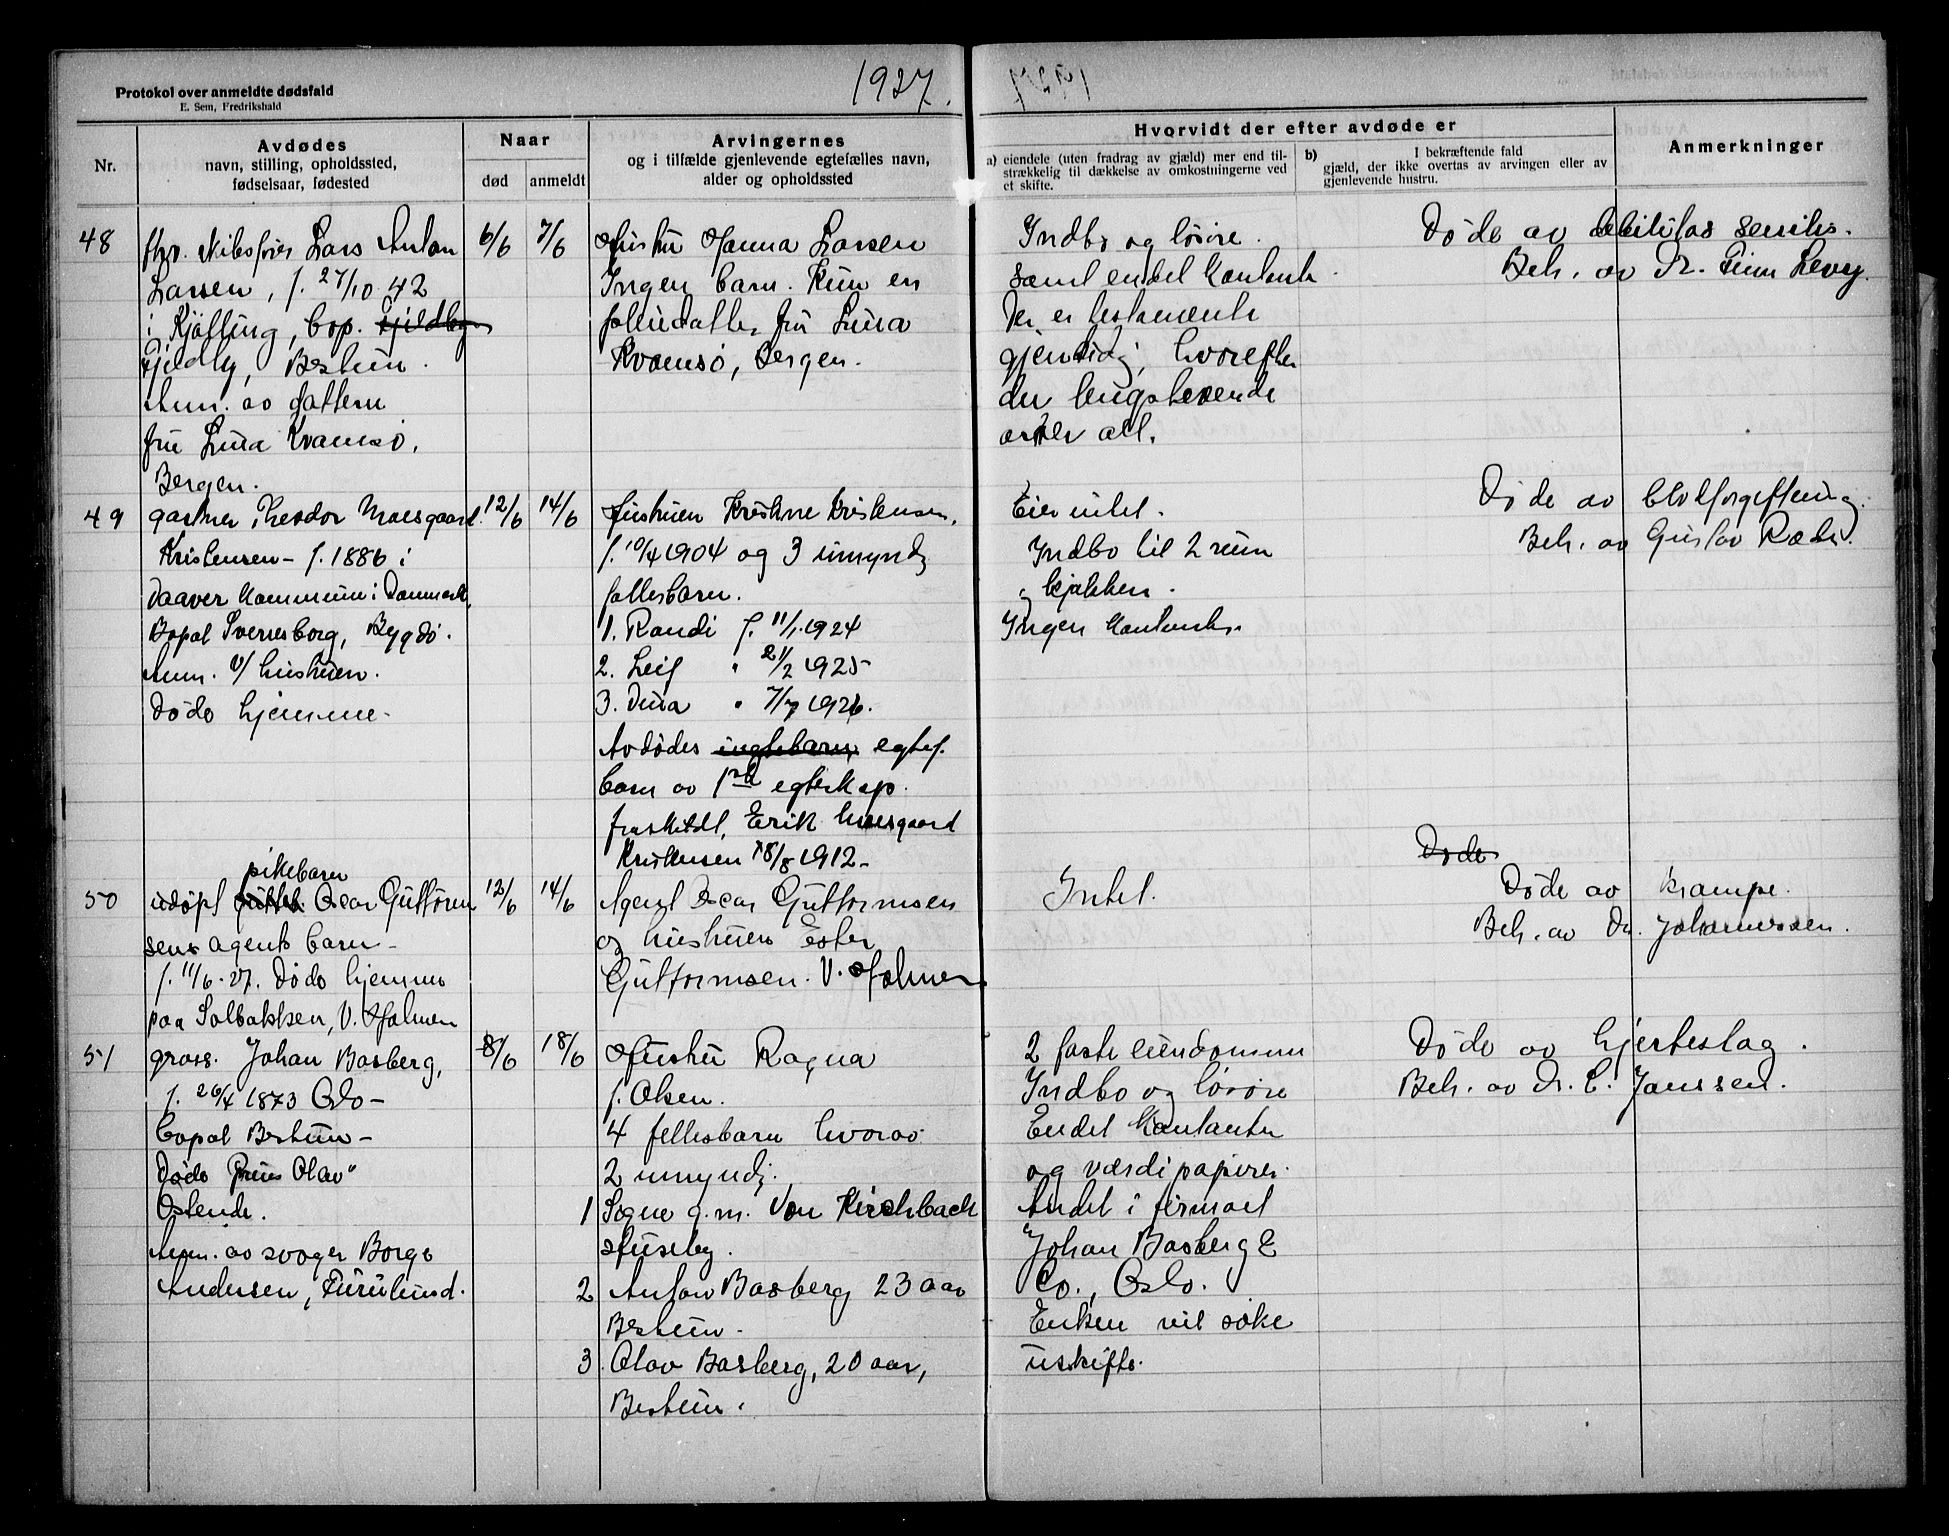 Protokol over anmeldte dødsfald
E. Sem, Fredrikshald
1927.
Nr.
Avdødes
navn, stilling, opholdssted,
fødselsaar, fødested
Naar
død
anmeldt
Arvingernes
og i tilfælde gjenlevende egtefælles navn,
alder og opholdssted
Hvorvidt der efter avdøde er
a) eiendele (uten fradrag av gjæld) mer end til-
strækkelig til dækkelse av omkostningerne ved
et skifte.
b) I bekræftende fald
gjæld, der ikke overtas av arvingen eller av
gjenlevende hustru.
Anmerkninger
48
fhv. skibsfører Lars Anton
Larsen, f. 27/10 42
i Kjølling, bop. Fjeldby
Fjeldby, Bestum.
Anm. av datteren
fru Lina Kvamsø,
Bergen.
6/6
7/6
Hustru Hanna Larsen
Ingen barn. Kun en
fru Lina
Kvamsø, Bergen.
Indbo og løsøre.
samt endel kontanter
Der er testamente
gjensidig, hvorefter
den lengstlevende
arver alt.
Døde av debilitas senilis.
Beh. av Dr. Finn Levy.
49
gartner Theodor Moesgaard
Kristensen - f. 1886 i
Daaver kommune i Danmark,
Bopæl Sverresborg, Bygdø.
Anm. v/ hustruen.
Døde hjemme -
12/6
14/6
Hustruen Kristine Kristensen,
f. 10/4 1904 og 3 umyndig
fellesbarn.
1. Randi f. 11/1 1924
2. Leif " 21/2 1925
3. Dina " 7/7 1926.
Avdødes egtef.
barn av 1ste egteskap.
fraskildt, Erik Moesgaard
Kristensen 18/8 1912 -
Eier intet.
Indbo til 2 rum
og kjøkken.
Ingen kontanter.
Døde av blodforgiftning.
Beh. av Gustav Ræder.
50
pikebarn
udøpt gutteb. Oscar Guttorm
sens agents barn -
f. 11/6-27. Døde hjemme
paa Solbakken, V. Holmen
12/6
14/6
Agent Oscar Guttormsen
og hustruen Ester
Guttormsen. V. Holmen
Intet.
Døde
Døde av krampe.
Beh. av Dr. Johannessen.
51
gross. Johan Basberg,
f. 26/4 1873 Oslo -
bopæl Bestum -
Døde "Prins Olav"
Ostende.
Anm. av svoger Borge
Andersen, Furulund.
8/6
18/6
Hustru Ragna
f. Olsen.
4 fellesbarn hvorav
2 umyndig.
1 Signe g.m. Von Kirchbach
Huseby.
2 Anton Basberg 23 aar
Bestum.
3. Olav Basberg, 20 aar,
Bestum.
2 faste eiendommer
Indbo og løsøre
Endel kontanter
og værdipapirer.
Andel i firmaet
Johan Basberg &
Co., Oslo.
Enken vil søke
uskifte.
Døde av hjerteslag.
Beh. av Dr. C. Janssen.